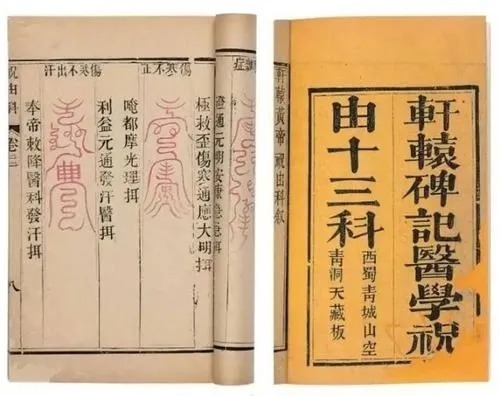 軒轅碑記醫學祝
由十三科
西蜀青城山空
青洞天藏板
軒轅黃帝祝由科敘
症
極救歪傷突通應大明
傷寒不正
唵都摩光理
傷寒不出汗
利益元通發汗醫
奉帝敕降醫科發汗
祝由科
八